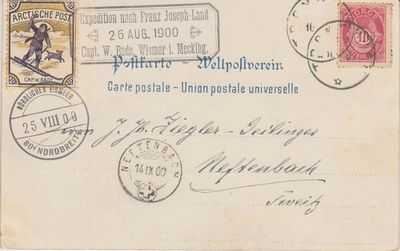 ARCTISCHE POST
CAP. W. BADE
Expedition nach Franz Joseph-Land
26 AUG. 1900
Capt. W. Bade, Wismar i. Mecklbg.
NORGE
10
Postkarte - Weltpostverein
Carte postale - Union postale universelle
NÖRDLICHES EISMEER
25 VIII 00
80° NORDBREITE
Herrn J. Hch. Ziegler-Geilinger
NEFTENBACH
14 IX 00
Neftenbach
Sveitz